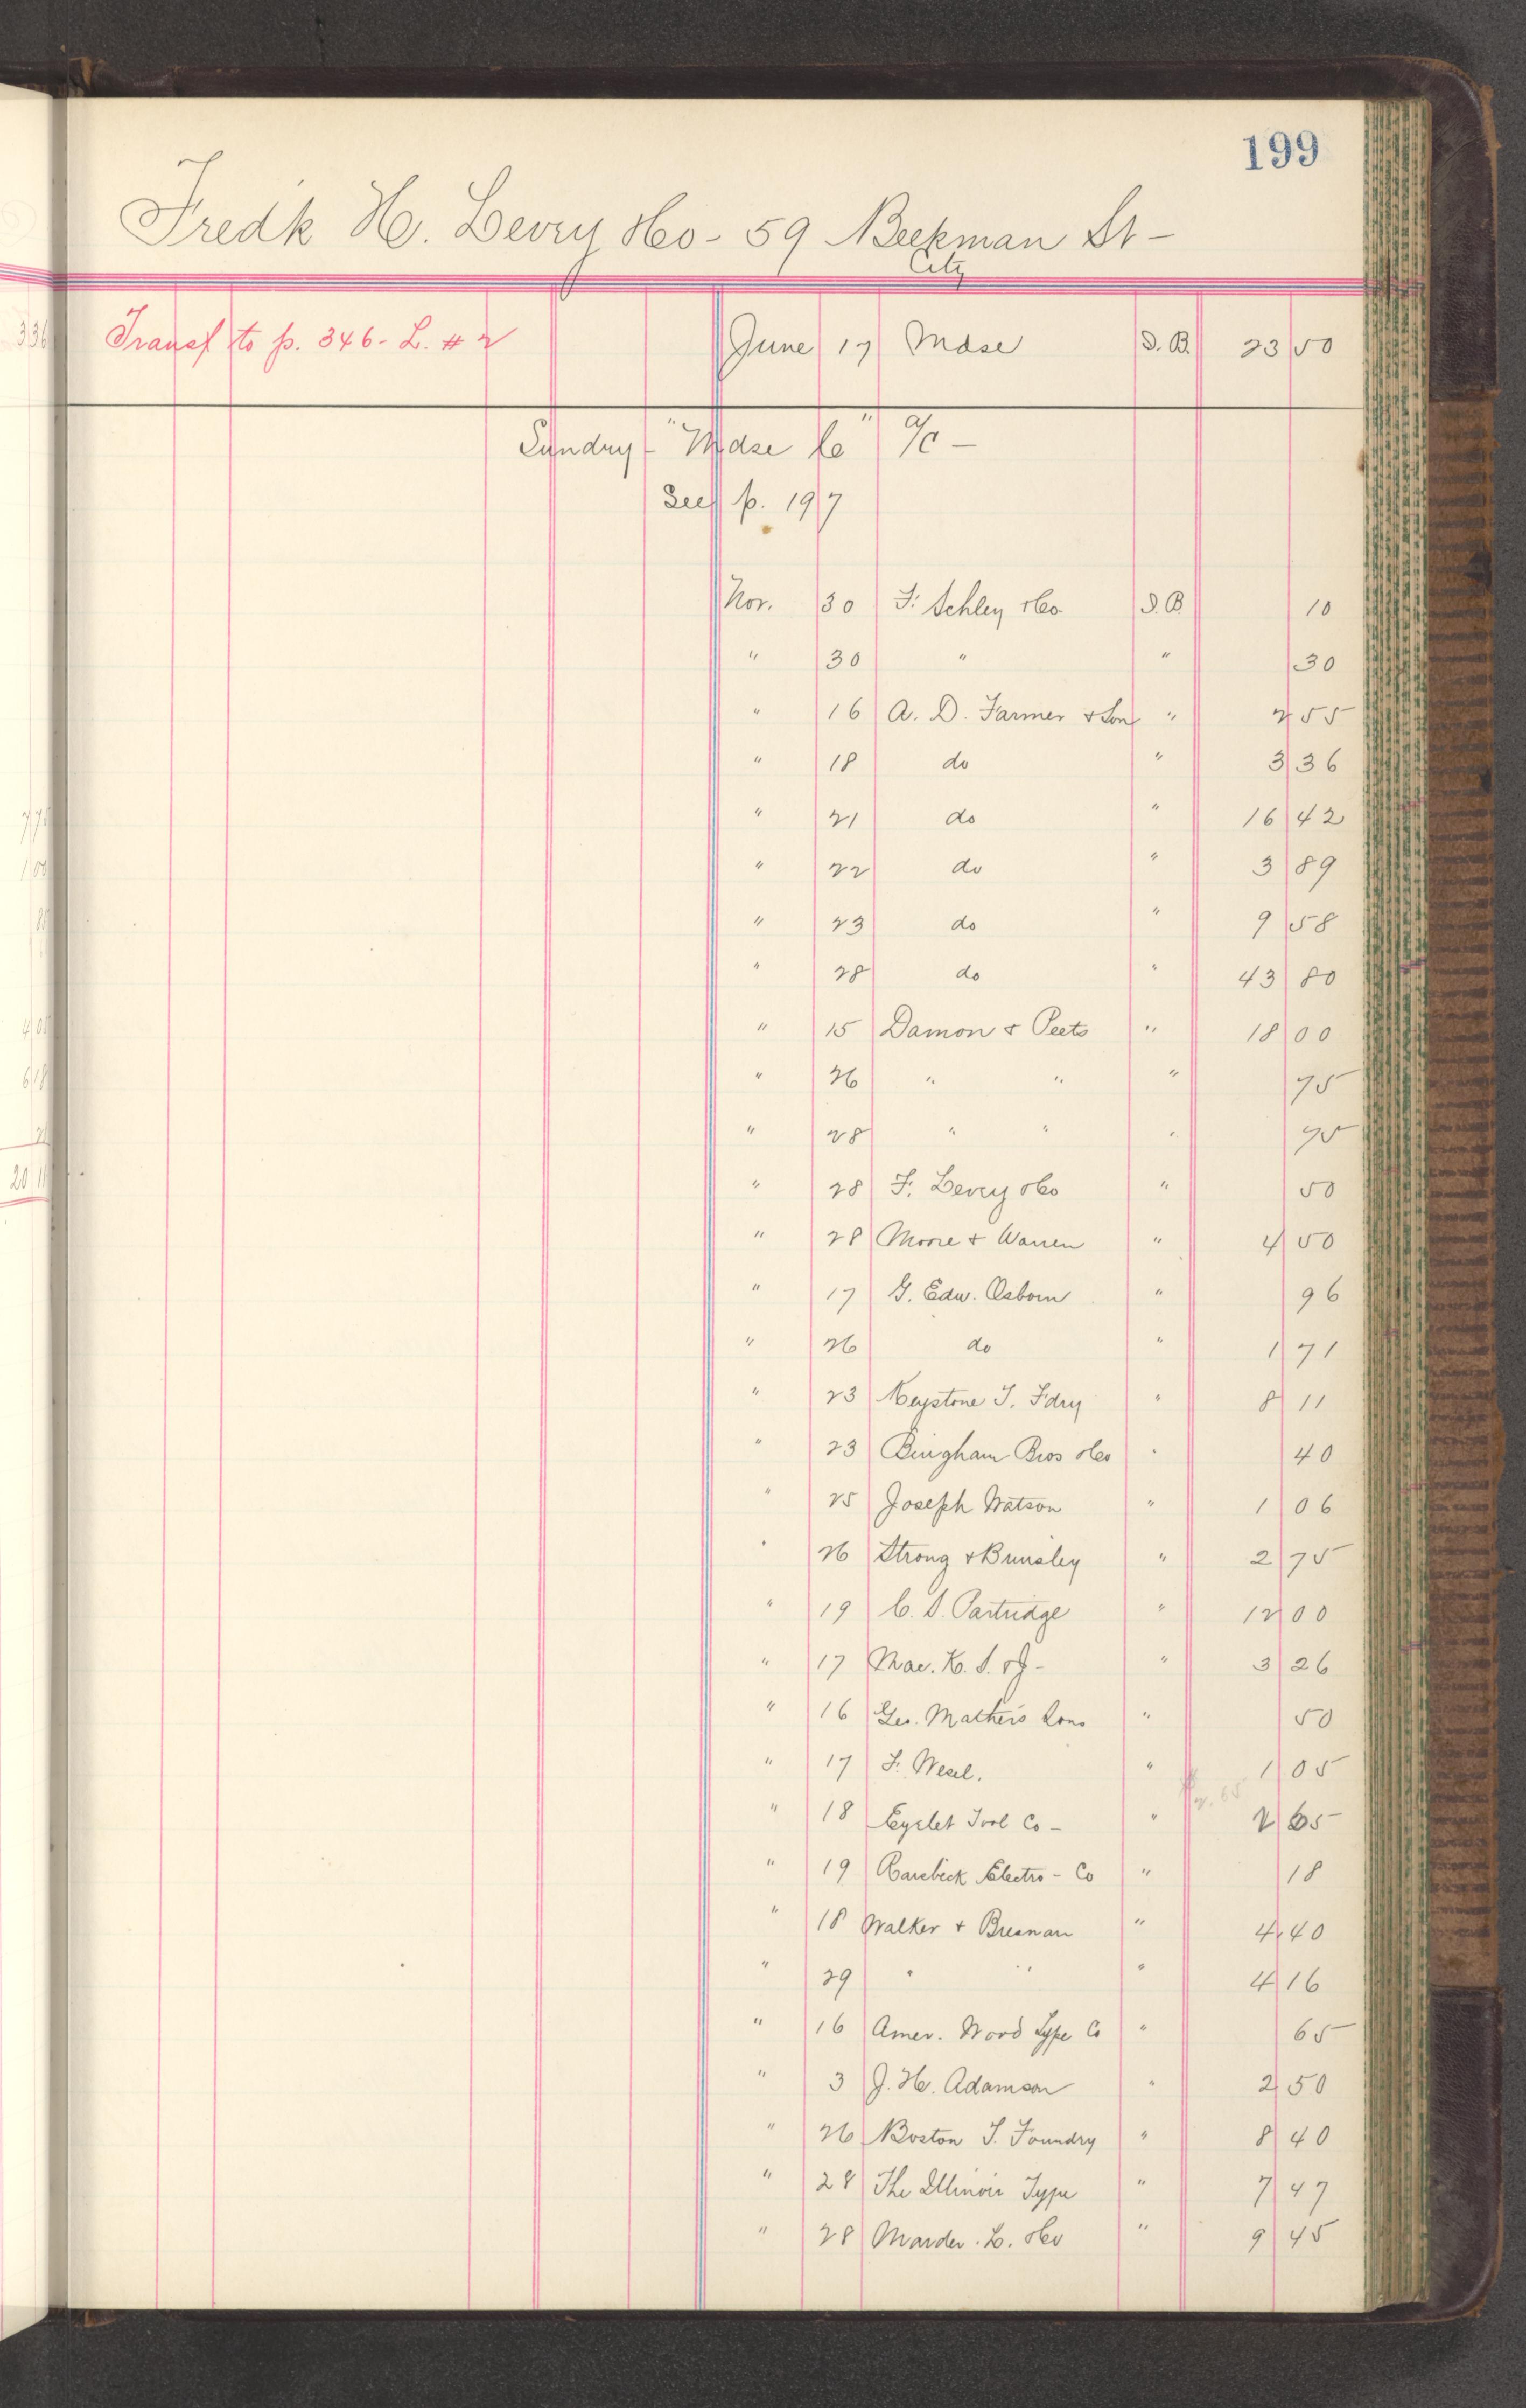 199
Fred'k H. Levey & Co - 59 Beekman St -
City
Transf to p. 346 - L. # 2 June 17 Mdse S. B. 23 50
Sundry - "Mdse Co" a/c -
See p. 197
Nov. 30 F. Schley & Co S. B. 10
" 30 " " 30
" 16 A. D. Farmer & Son " 2 55
" 18 do " 3 36
" 21 do " 16 42
" 22 do " 3 89
" 23 do " 9 58
" 28 do " 43 80
" 15 Damon & Peets " 18 00
" 26 " " " 75
" 28 " " " 75
" 28 F. Levey & Co " 50
" 28 Moore & Warren " 4 50
" 17 G. Edw. Osborn " 96
" 26 do " 1 71
" 23 Keystone T. F'dry " 8 11
" 23 Bingham Bros & Co " 40
" 25 Joseph Watson " 1 06
" 26 Strong & " 2 75
" 19 C. S. Partridge " 12 00
" 17 Mac. K. S. & J - " 3 26
" 16 Geo. Mather's Sons " 50
" 17 F. Wesel. " 1 05
2.65
" 18 Eyelet Tool Co - " 2 65
" 19 Electro - Co " 18
" 18 Walker & Bresnan " 4 40
" 29 " " " 4 16
" 16 Amer. Wood Type Co " 65
" 3 J. H. Adamson " 2 50
" 26 Boston T. Foundry " 8 40
" 28 The Illinois Type " 7 47
" 28 Marder. L. & Co " 9 45
336
775
100
85
400
618
20 11